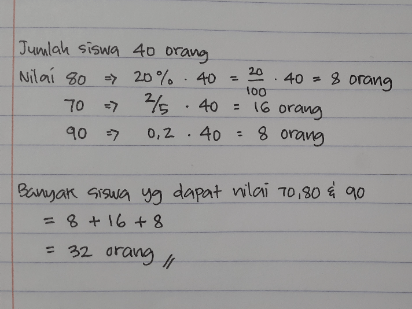 Jumlah siswa 40 orang
Nilai 80 ⇒ 20% · 40 = 20/100 · 40 = 8 orang
70 ⇒ 2/5 · 40 = 16 orang
90 ⇒ 0,2 · 40 = 8 orang
Banyak siswa yg dapat nilai 70, 80 & 90
= 8 + 16 + 8
= 32 orang //